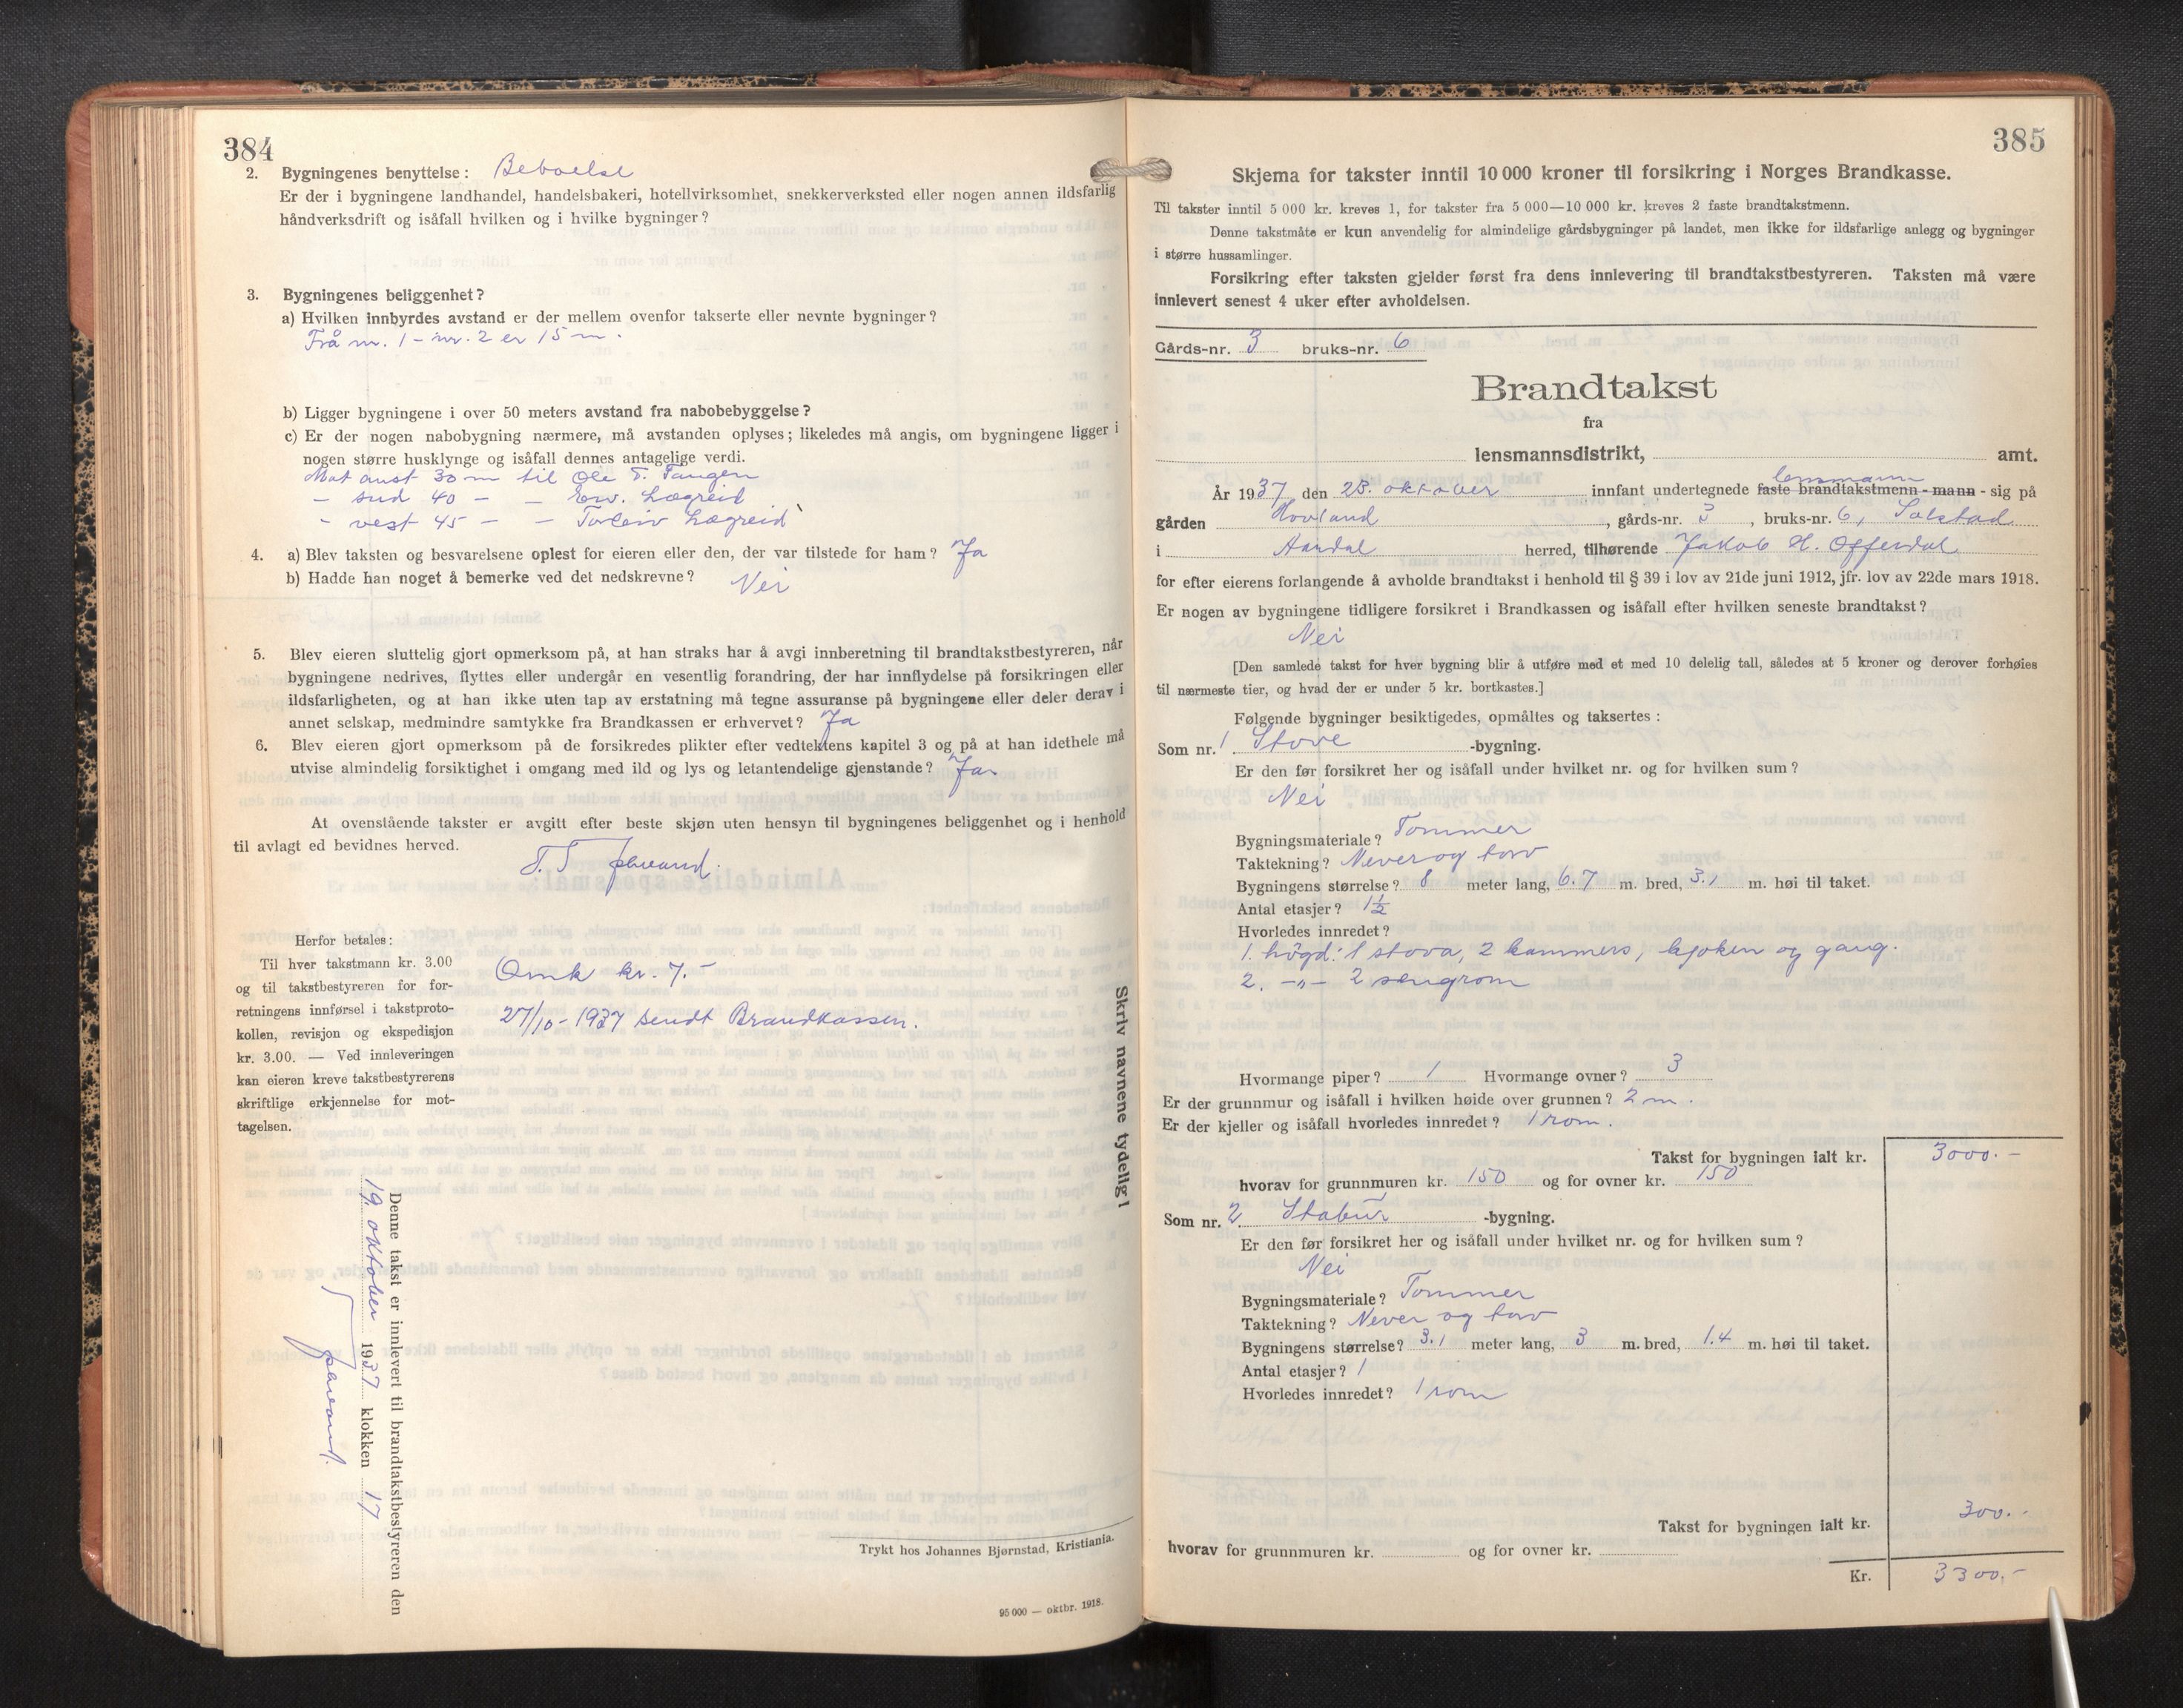 384
2. Bygningenes benyttelse: Beboelse
Er der i bygningene landhandel, handelsbakeri, hotellvirksomhet, snekkerverksted eller nogen annen ildsfarlig
håndverksdrift og isåfall hvilken og i hvilke bygninger?
3. Bygningenes beliggenhet?
a) Hvilken innbyrdes avstand er der mellem ovenfor takserte eller nevnte bygninger?
Frå nr. 1 - nr. 2 er 15 m.
b) Ligger bygningene i over 50 meters avstand fra nabobebyggelse?
c) Er der nogen nabobygning nærmere, må avstanden oplyses; likeledes må angis, om bygningene ligger i
nogen større husklynge og isåfall dennes antagelige verdi.
Mot aust 30 m til Ole T. Tangen
- sud 40 - - Lægreid
- vest 45 - - Torleiv Lægreid
4. a) Blev taksten og besvarelsene oplest for eieren eller den, der var tilstede for ham? Ja
b) Hadde han noget å bemerke ved det nedskrevne? Nei
5. Blev eieren sluttelig gjort opmerksom på, at han straks har å avgi innberetning til brandtakstbestyreren, når
bygningene nedrives, flyttes eller undergår en vesentlig forandring, der har innflydelse på forsikringen eller
ildsfarligheten, og at han ikke uten tap av erstatning må tegne assuranse på bygningene eller deler derav i
annet selskap, medmindre samtykke fra Brandkassen er erhvervet? Ja
6. Blev eieren gjort opmerksom på de forsikredes plikter efter vedtektens kapitel 3 og på at han idethele må
utvise almindelig forsiktighet i omgang med ild og lys og letantendelige gjenstande? Ja.
At ovenstående takster er avgitt efter beste skjøn uten hensyn til bygningenes beliggenhet og i henhold
til avlagt ed bevidnes herved.
Herfor betales:
Til hver takstmann kr. 3.00
og til takstbestyreren for for-
retningens innførsel i takstproto-
kollen, revisjon og ekspedisjon
kr. 3.00. — Ved innleveringen
kan eieren kreve takstbestyrerens
skriftlige erkjennelse for mot-
tagelsen.
Omk kr. 7.-
27/10-1937 sendt Brandkassen.
Skriv navnene tydelig!
Denne takst er innlevert til brandtakstbestyreren den
19. oktober 1937 klokken 17
Trykt hos Johannes Bjørnstad, Kristiania.
95 000 — oktbr. 1918.
385
Skjema for takster inntil 10 000 kroner til forsikring i Norges Brandkasse.
Til takster inntil 5 000 kr. kreves 1, for takster fra 5 000—10 000 kr. kreves 2 faste brandtakstmenn.
Denne takstmåte er kun anvendelig for almindelige gårdsbygninger på landet, men ikke for ildsfarlige anlegg og bygninger
i større hussamlinger.
Forsikring efter taksten gjelder først fra dens innlevering til brandtakstbestyreren. Taksten må være
innlevert senest 4 uker efter avholdelsen.
Gårds-nr. 3 bruks-nr. 6
Brandtakst
fra
lensmannsdistrikt, amt.
lensmann
År 1937, den 23. oktober innfant undertegnede faste brandtakstmenn - mann - sig på
gården Hovland, gårds-nr. 3, bruks-nr. 6, Solstad
i Aardal herred, tilhørende Jakob H. Offerdal
for efter eierens forlangende å avholde brandtakst i henhold til § 39 i lov av 21de juni 1912, jfr. lov av 22de mars 1918.
Er nogen av bygningene tidligere forsikret i Brandkassen og isåfall efter hvilken seneste brandtakst?
Nei
[Den samlede takst for hver bygning blir å utføre med et med 10 delelig tall, således at 5 kroner og derover forhøies
til nærmeste tier, og hvad der er under 5 kr. bortkastes.]
Følgende bygninger besiktigedes, opmåltes og taksertes:
Som nr. 1 Stove -bygning.
Er den før forsikret her og isåfall under hvilket nr. og for hvilken sum?
Nei
Bygningsmateriale? Tommer
Taktekning? Never og torv
Bygningens størrelse? 8 meter lang, 6.7 m. bred, 3.1 m. høi til taket.
Antal etasjer? 1½
Hvorledes innredet?
1. högd: 1 stova, 2 kammers, kjøken og gang.
2. -"- 2 sengrom
Hvormange piper? 1 Hvormange ovner? 3
Er der grunnmur og isåfall i hvilken høide over grunnen? 2 m.
Er der kjeller og isåfall hvorledes innredet? 1 rom.
Takst for bygningen ialt kr. 3000.-
hvorav for grunnmuren kr. 150 og for ovner kr. 150
Som nr. 2 Stabur -bygning.
Er den før forsikret her og isåfall under hvilket nr. og for hvilken sum?
Nei
Bygningsmateriale? Tommer
Taktekning? Never og torv
Bygningens størrelse? 3.1 meter lang, 3 m. bred, 1.4 m. høi til taket.
Antal etasjer? 1
Hvorledes innredet? 1 rom
Takst for bygningen ialt kr. 300.-
hvorav for grunnmuren kr. og for ovner kr.
Kr. 3300.-